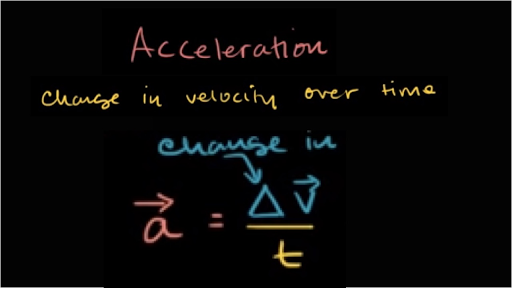 Acceleration
change in velocity over time
change in
a⃗ = Δv⃗ / t